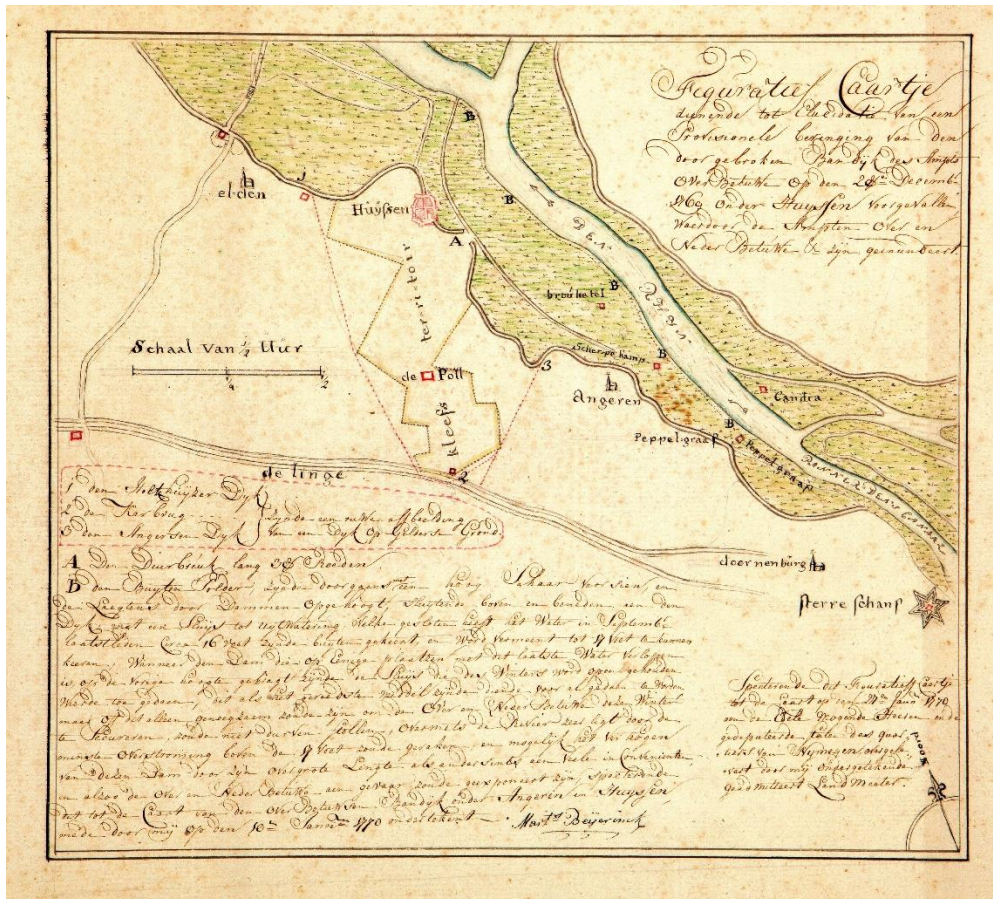 Figuratief Caartje
dienende tot Elucidatie van een
Provisioneele bevinging van den
doorgebroken Bandijk des Ampts
Over Betuwe op den 28en Decemb
1769 onder Huyssen voorgevallen
Waerdoor de Ampten Over en
Neder Betuwe & zijn geinundeert
elden
1
Huÿssen
A
B
B
B
den Rhijn
breuketel
Scherpe kamp
B
Schaal van ½ Uur
¼
½
kleefs territoir
de Poll
3
Angeren
Candia
Peppelgraaf
B
Peppelgraaf
de linge
2
1 den Holthuyzer Dyk
2 de Karbrug
3 den Angersen Dyk
zijnde een ruwe afbeelding
van een Dyk op Gelderse Grond
A Den Deurbreuk lang 38 Rooden
B den Buyten Polder zijnde doorgaans met een hoog Schaar voorsien, en
de Laegtens door Dammen opgehoogt, sluytende boven en beneden aen den
Dyk met een Sluijs tot uytwatering welke gesloten heeft het Water in Septemb
laatstleden circa 16 voet zynde buyten gekeert, en word vermeent tot 17 voet te kunnen
keeren, Wanneer den Dam die op eenige plaatzen met het laatste Water verlopen
is op de vorige hoogte gebragt zynde en Sluys die des Winters word open gehouden
Wierde toe gedaen, dit als het gereedste middel zijnde diende voor al gedaan te worden
maer op dit alleen genoegzaem zoude zyn om de Over en Neder Betuwe deze Winter
te Secureren, zoude niet durven stellen, overmits de Rivier zeer ligt door de
minste Overstroming boven de 17 voet zoude geraken, en mogelijk het ver hoogen
van dezen Dam door zijn overgrote Lengte als andersints aen veele inconvenienten
en alzoo de Over en Neder Betuwe aen gevaar zoude geexponeert zijn, specterende
dit tot de Caart van den Over Betuwsen Bandijk onder Angeren en Huyssen
mede door mij op den 10en Janu 1770 onderteekent
Mart Beijerinck
doornenburg
sterre schans
Specterende dit Figuratief Caartje
tot de Caart op den Janu 1770
aan de Edele Mogende Heeren en de
gedeputeerde Staten des quar
tiers van Nijmegen overgele
vert door mij ondergetekende
geadmitteert Land Meeter.
Noord